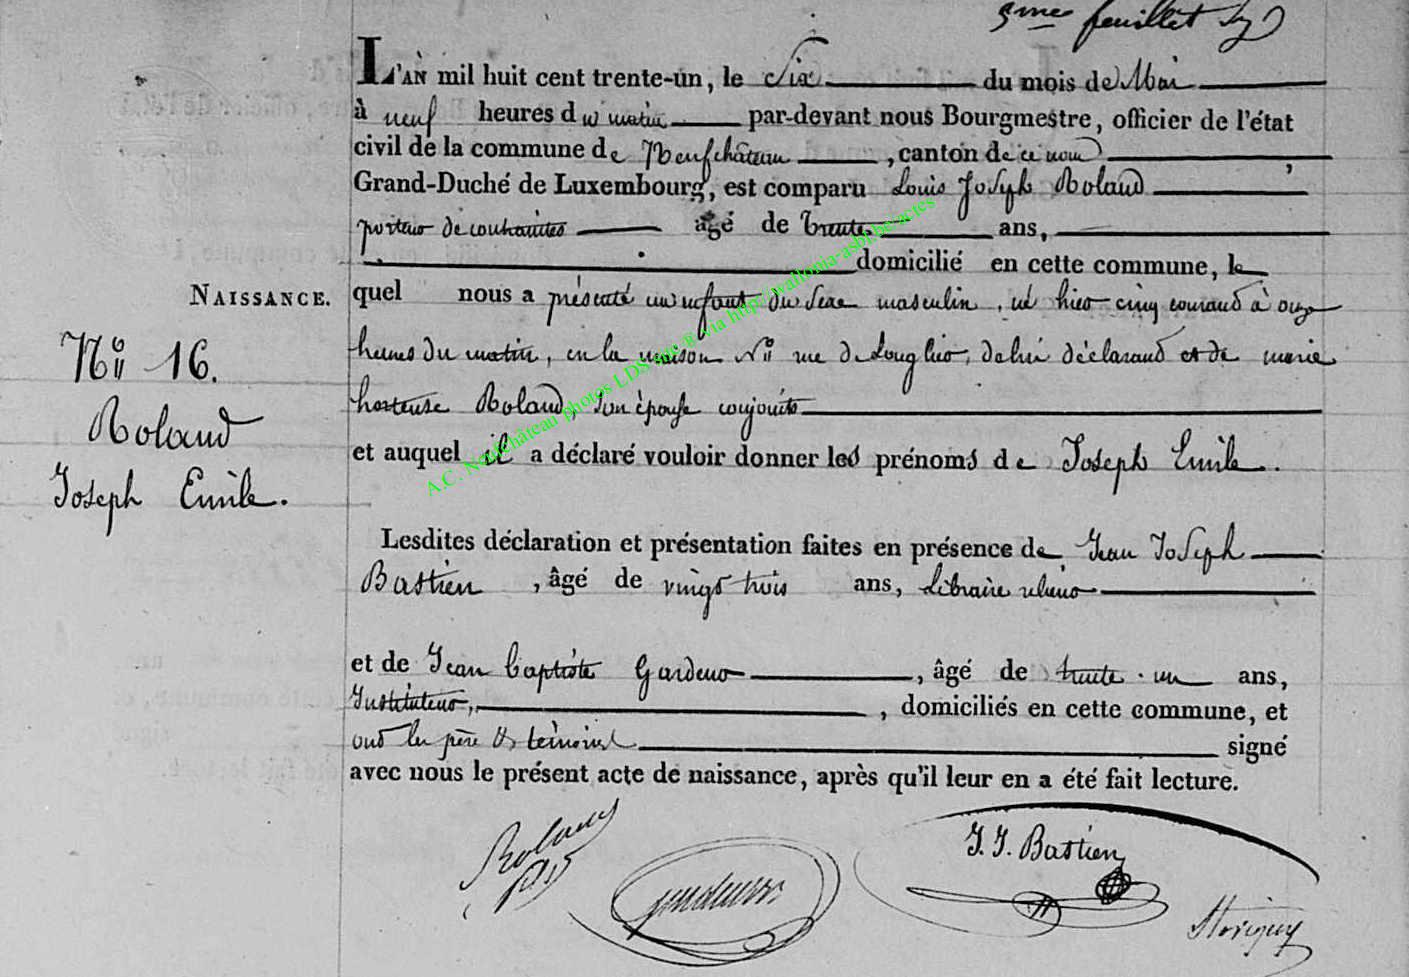 5me feuillet
L'AN mil huit cent trente-un, le Six du mois de Mai
à neuf heures du matin par-devant nous Bourgmestre, officier de l'état
civil de la commune de Neufchâteau, canton de ce nom,
Grand-Duché de Luxembourg, est comparu Louis Joseph Roland
porteur de contraintes âgé de trente ans,
domicilié en cette commune, le
NAISSANCE.
quel nous a présenté un enfant du sexe masculin, né hier cinq courant à onze
heures du matin, en la maison Nº rue de Longlier, de lui déclarant et de marie
Nº 16.
hortense Roland, son épouse conjointe
Roland
et auquel il a déclaré vouloir donner les prénoms de Joseph Emile.
Joseph Emile.
Lesdites déclaration et présentation faites en présence de Jean Joseph
Bastien, âgé de vingt trois ans, Libraire relieur
et de Jean baptiste Gardeur, âgé de trente-un ans,
Instituteur, domiciliés en cette commune, et
ont les père et témoins signé
avec nous le présent acte de naissance, après qu'il leur en a été fait lecture.
Roland
J. J. Bastien
A.C. Neufchâteau photos LDS via http://wallonia-asbl.be/actes